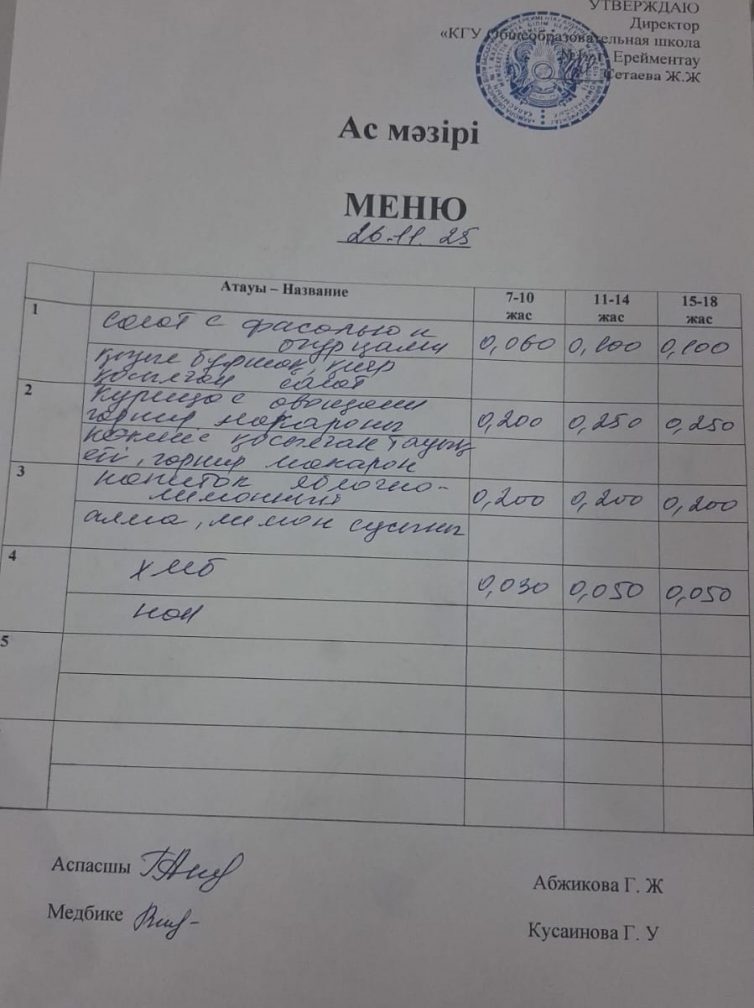 УТВЕРЖДАЮ
Директор
«КГУ Общеобразовательная школа
Ерейментау
Сетаева Ж.Ж
Ас мәзірі
МЕНЮ
26.11.25
Атауы – Название 7-10 жас 11-14 жас 15-18 жас
1 салат с фасолью и
огурцами 0,060 0,100 0,100
қосылған салат
2 курица с овощами
гарнир макароны 0,200 0,250 0,250
көкөніс қосылған тауық
еті, гарнир макарон
3 напиток яблочно-
лимонный 0,200 0,200 0,200
алма, лимон сусыны
4 хлеб 0,030 0,050 0,050
нан
5
Аспасшы Абжикова Г. Ж
Медбике Кусаинова Г. У